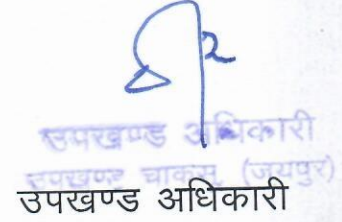 उपखण्ड अधिकारी
उपखण्ड चाकसू (जयपुर)
उपखण्ड अधिकारी